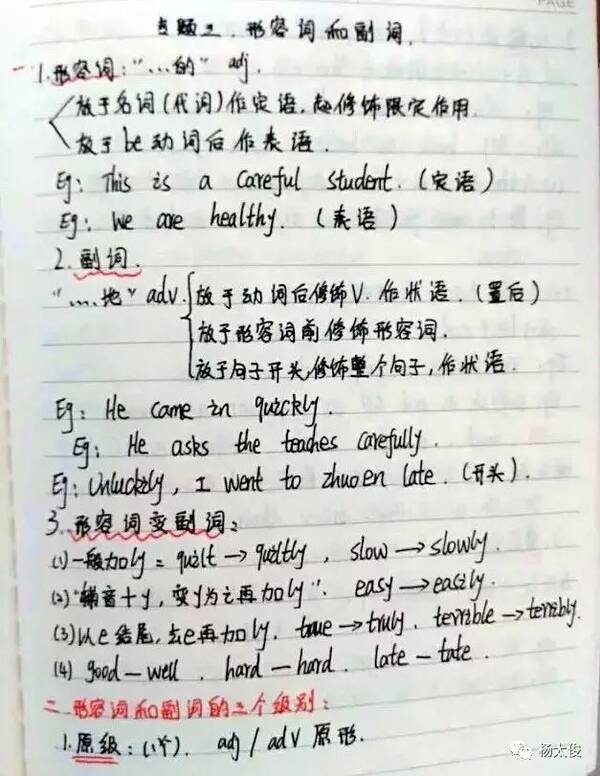 PAGE
专题三. 形容词和副词.
一
1. 形容词: "…的" adj.
放于名词(代词)作定语, 起修饰限定作用.
放于 be 动词后作表语.
Eg: This is a careful student. (定语)
Eg: We are healthy. (表语)
2. 副词.
"…地" adv. 放于动词后修饰V. 作状语. (置后)
放于形容词前修饰形容词.
放于句子开头, 修饰整个句子, 作状语.
Eg: He came in quickly.
Eg: He asks the teaches carefully.
Eg: Unluckily, I went to zhuoen late. (开头).
3. 形容词变副词:
(1) 一般加ly = quilt → quiltly, slow → slowly.
(2) "辅音+y, 变y为i再加ly". easy → easily.
(3) 以e结尾, 去e再加ly. true → truly. terrible → terribly.
(4) good — well. hard — hard. late — tate.
二 形容词和副词的三个级别:
1. 原级: (1个). adj / adv 原形.
杨太俊